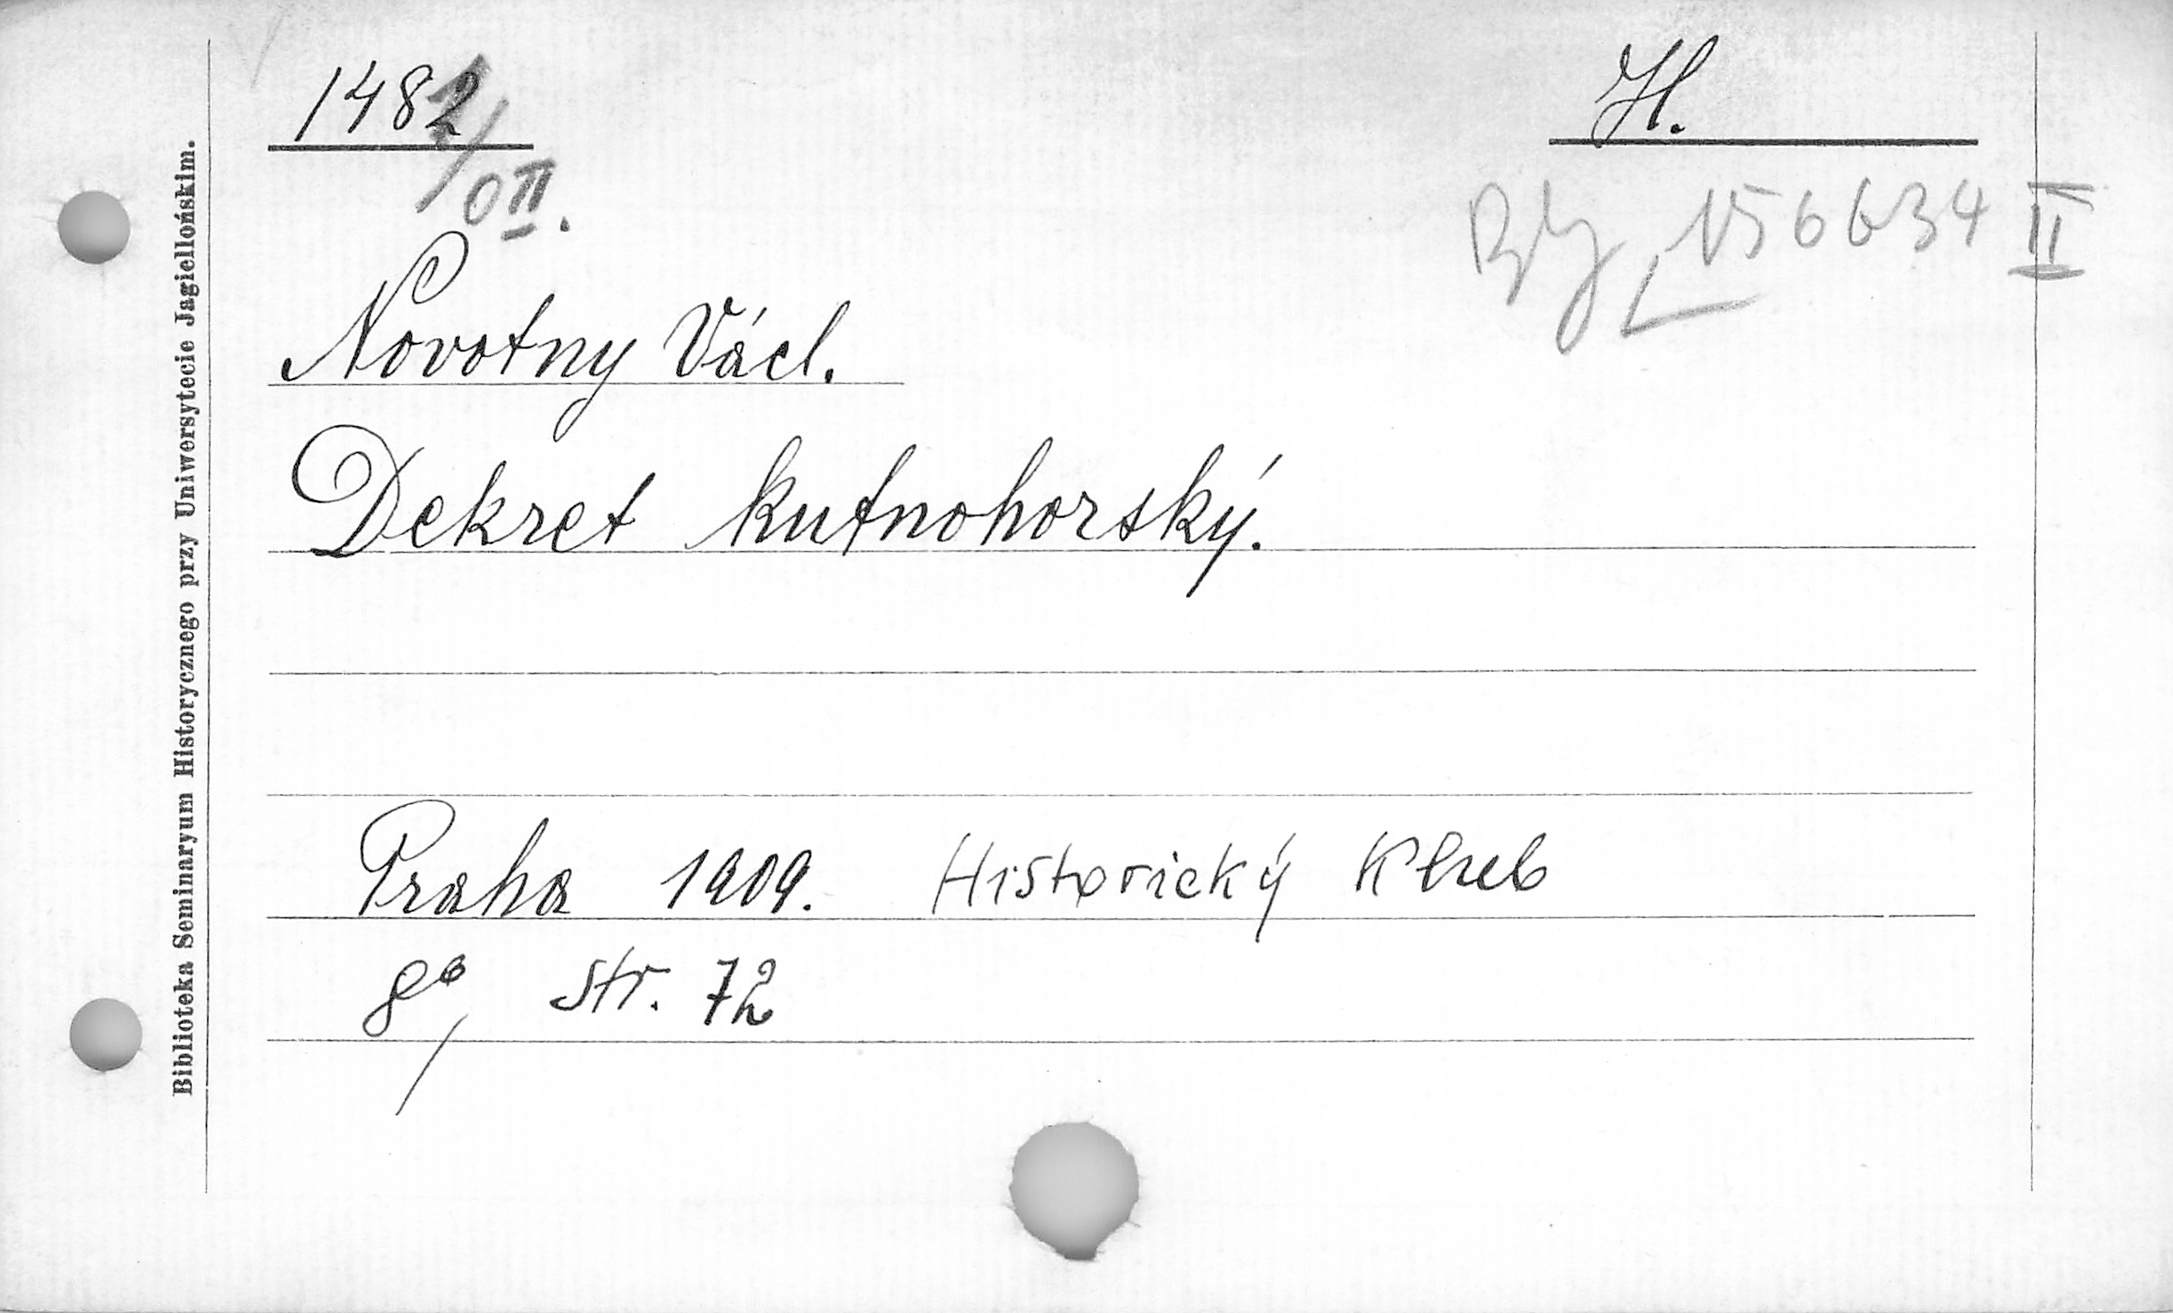 1482/0II. H.
BJ 156634 II
Novotny Václ.
Dekret kutnohorský.
Praha 1909. Historický Klub
8°, str. 72
Biblioteka Seminaryum Historycznego przy Uniwersytecie Jagiellońskim.